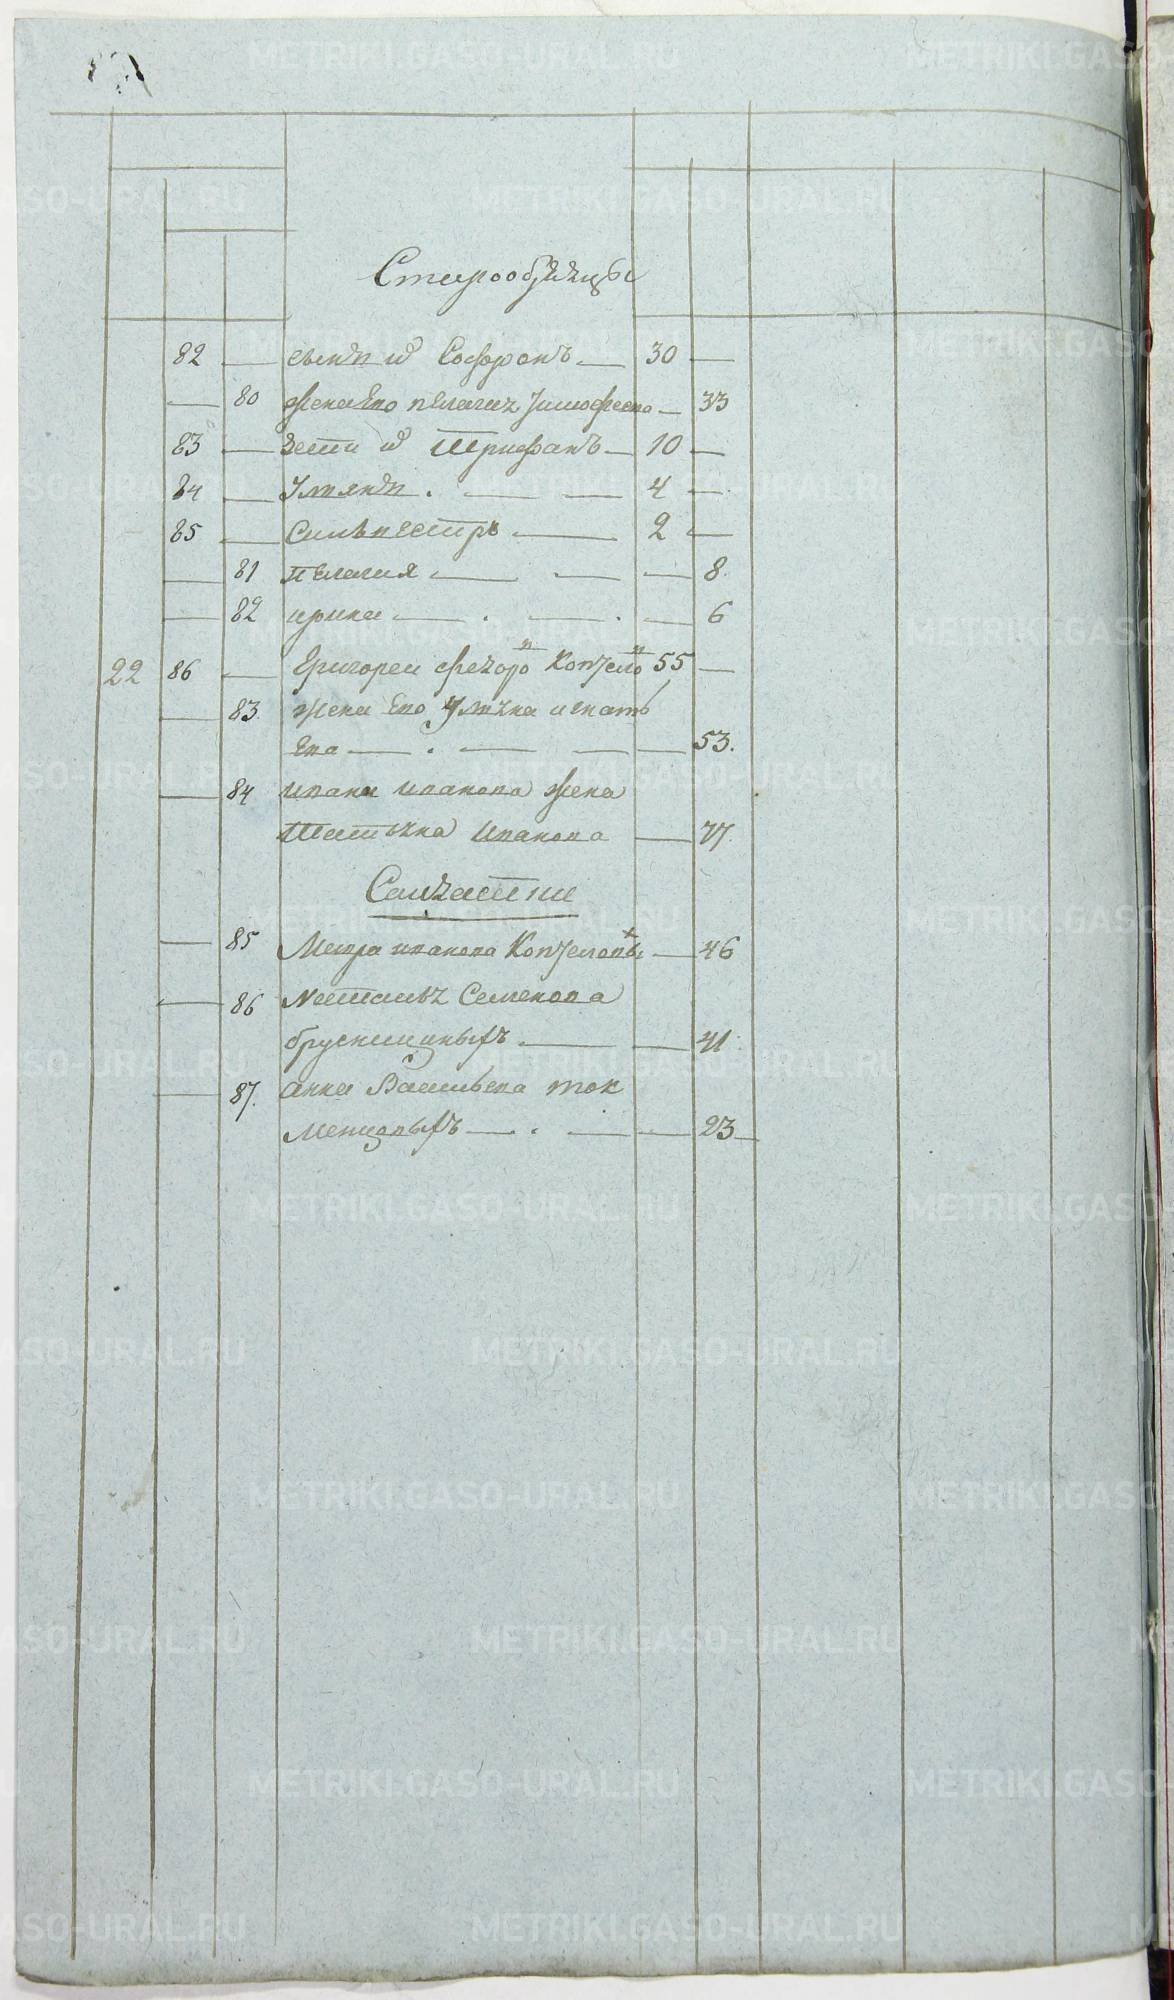 Старообрядцы
82 — сынъ их Софронъ — 30 —
— 80 жена его пелагия Тимофеева — 33
83 — дети их Трифанъ — 10 —
84 — Ульянъ . — — 4 —
85 — Силвестръ — 2 —
— 81 пелагия — — — 8
— 82 ирина — . — . — 6
22 86 — Григореи федоров Копуело 55 —
— 83 жена его Ульяна игнать
ева — . — — — 53.
— 84 ивана иванова жена
Татьяна Иванова — 77.
Салдатки
— 85 Мавра иванова — 46
— 86 Наталья Семенова
брусницыных — — 41
— 87. анна Васильева ток
менцовыхъ — . — — 23 —
METRIKI.GASO-URAL.RU